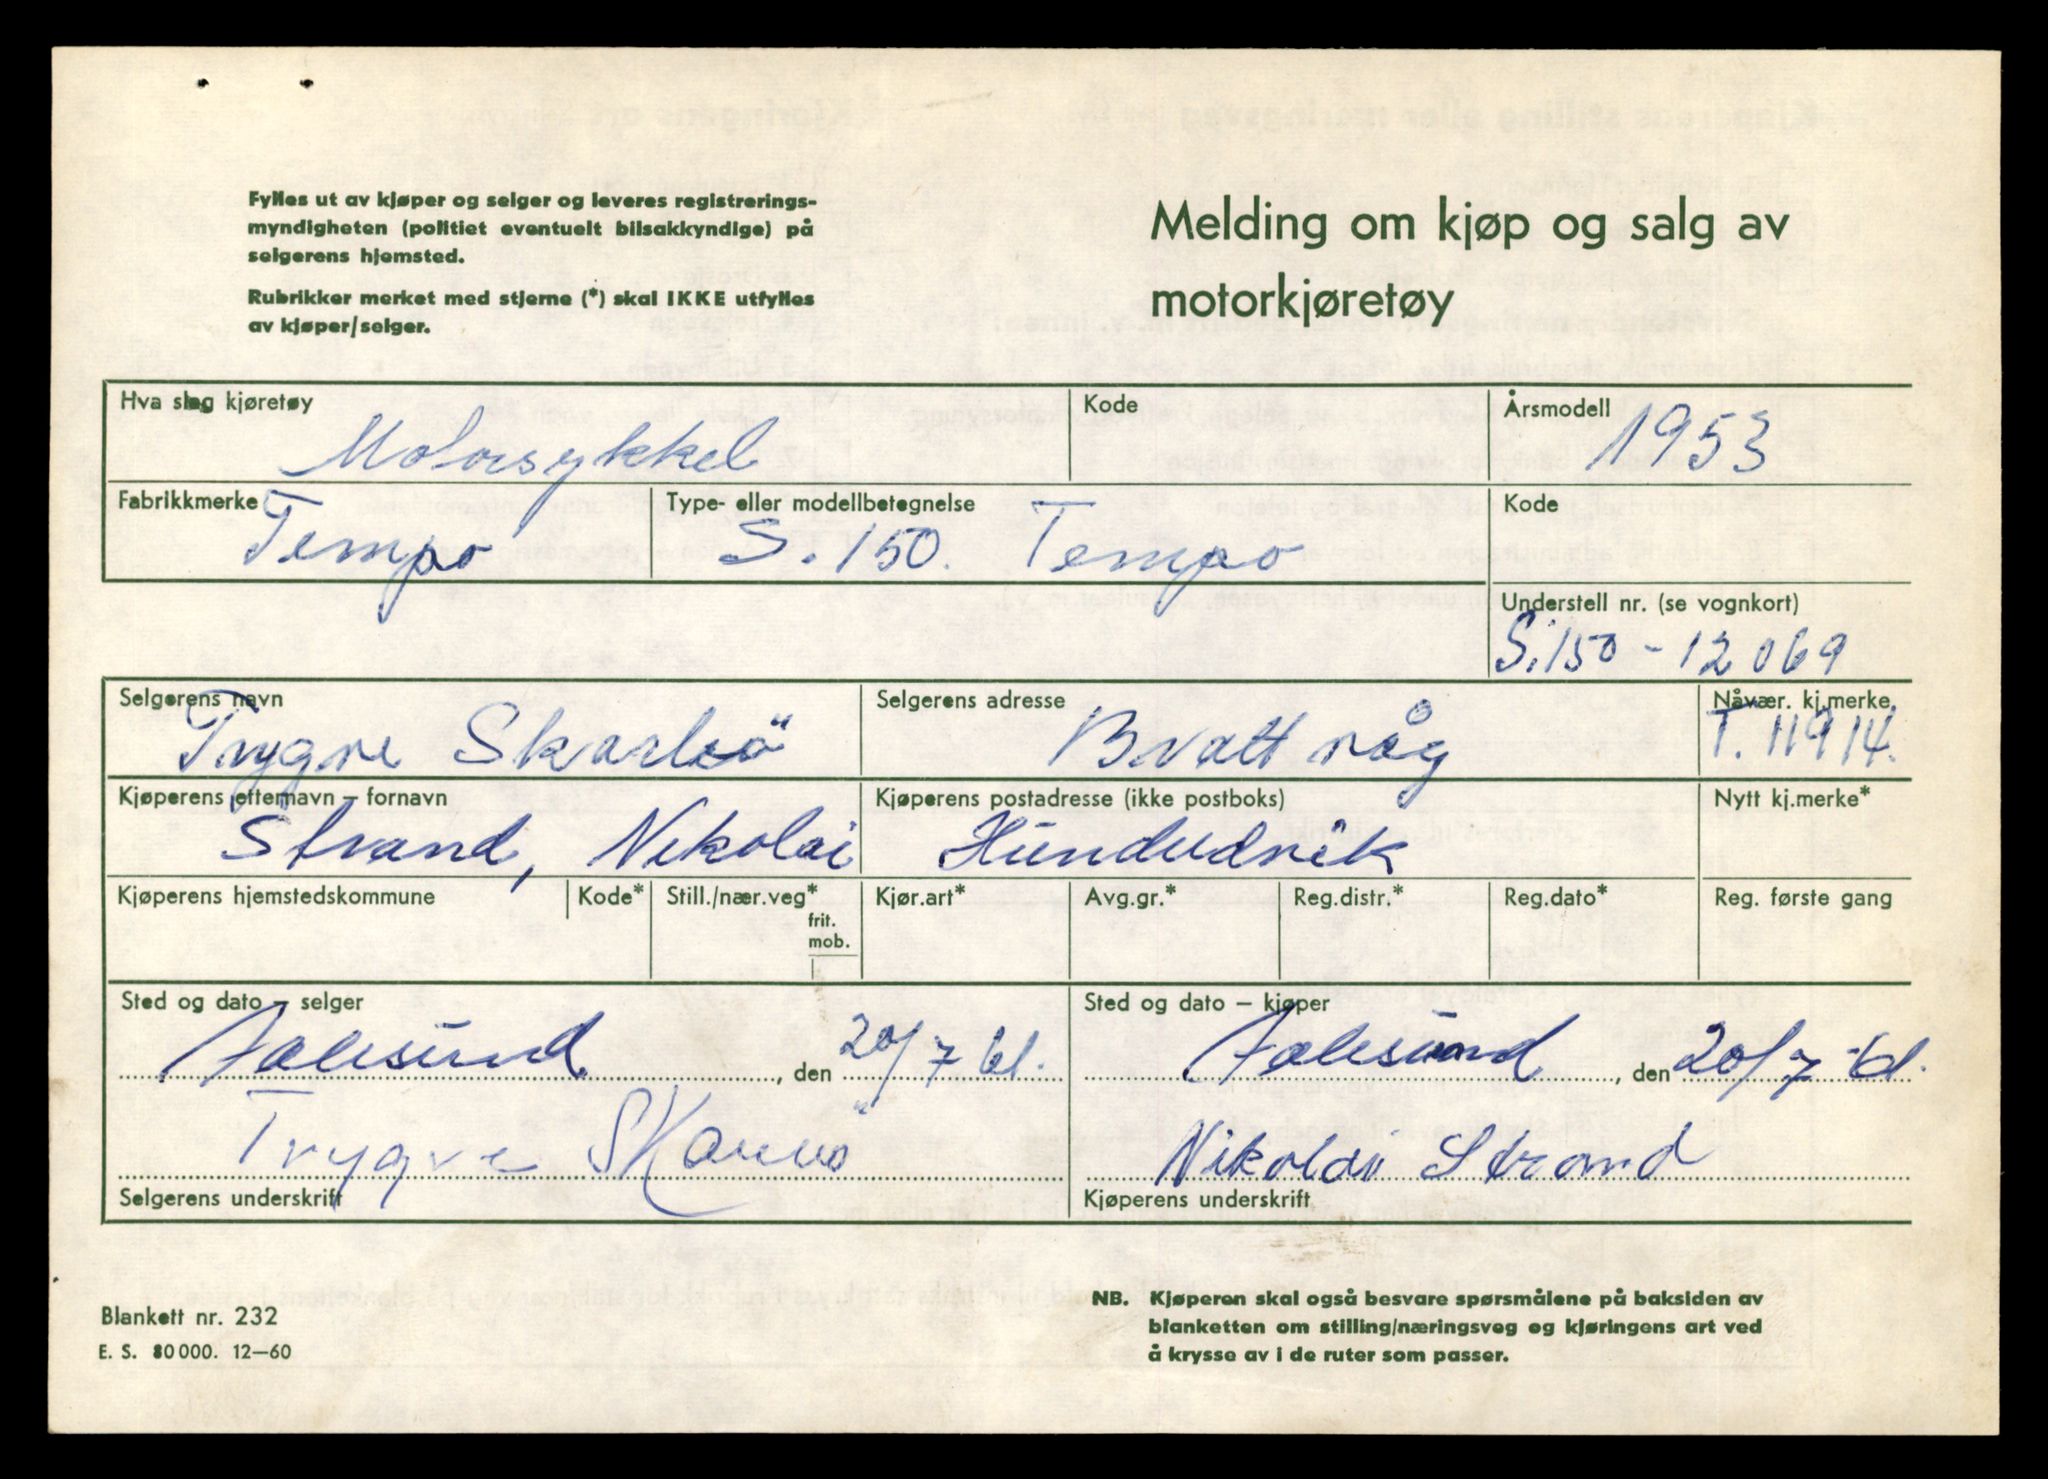 Fylles ut av kjøper og selger og leveres registrerings-
myndigheten (politiet eventuelt bilsakkyndige) på
selgerens hjemsted.
Rubrikker merket med stjerne (*) skal IKKE utfylles
av kjøper/selger.
Melding om kjøp og salg av
motorkjøretøy
Hva slag kjøretøy
Motorsykkel
Kode
Årsmodell
1953
Fabrikkmerke
Tempo
Type- eller modellbetegnelse
S. 150. Tempo
Kode
Understell nr. (se vognkort)
S.150 - 12069
Selgerens navn
Trygve
Selgerens adresse
Brattvåg
Nåvær. kj.merke
T. 11914.
Kjøperens etternavn – fornavn
Strand, Nikolai
Kjøperens postadresse (ikke postboks)
Nytt kj.merke*
Kjøperens hjemstedskommune
Kode*
Still./nær.veg*
frit.
mob.
Kjør.art*
Avg.gr.*
Reg.distr.*
Reg.dato*
Reg. første gang
Sted og dato – selger
Aalesund, den 20/7 61.
Trygve
Selgerens underskrift
Sted og dato – kjøper
Aalesund, den 20/7-61.
Nikolai Strand
Kjøperens underskrift
Blankett nr. 232
E. S. 80 000. 12—60
NB. Kjøperen skal også besvare spørsmålene på baksiden av
blanketten om stilling/næringsveg og kjøringens art ved
å krysse av i de ruter som passer.